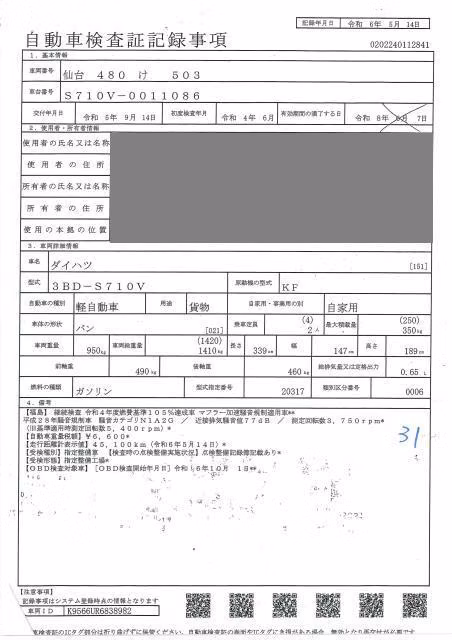 記録年月日 令和 6年 5月 14日
自動車検査証記録事項
0202240112841
1.基本情報
車両番号 仙台 480 け 503
車台番号 S710V-0011086
交付年月日 令和 5年 9月 14日 初度検査年月 令和 4年 6月 有効期間の満了する日 令和 8年 6月 7日
2.使用者・所有者情報
使用者の氏名又は名称
使用者の住所
所有者の氏名又は名称
所有者の住所
使用の本拠の位置
3.車両詳細情報
車名 ダイハツ [151]
型式 3BD-S710V 原動機の型式 KF
自動車の種別 軽自動車 用途 貨物 自家用・事業用の別 自家用
車体の形状 バン [021] 乗車定員 (4) 2人 最大積載量 (250) 350kg
車両重量 950kg 車両総重量 (1420) 1410kg 長さ 339cm 幅 147cm 高さ 189cm
前軸重 490kg 後軸重 460kg 総排気量又は定格出力 0.65 L
燃料の種類 ガソリン 型式指定番号 20317 類別区分番号 0006
4.備考
【福島】 継続検査 令和4年度燃費基準105%達成車 マフラー加速騒音規制適用車**
平成28年騒音規制車 騒音カテゴリN1A2G / 近接排気騒音値77dB / 測定回転数3,750rpm*
(旧基準適用時測定回転数5,400rpm)*
【自動車重量税額】¥6,600*
【走行距離計表示値】45,100km(令和6年5月14日)*
【受検種別】指定整備車 【検査時の点検整備実施状況】点検整備記録簿記載あり*
【受検形態】指定整備工場*
【OBD検査対象車】[OBD検査開始年月日] 令和 6年10月 1日**
31
【注意事項】
記録事項はシステム登録時点の情報となります
車両ID K9566UR6838982
車検査証のICタグ部分は折り曲げずに保管ください。